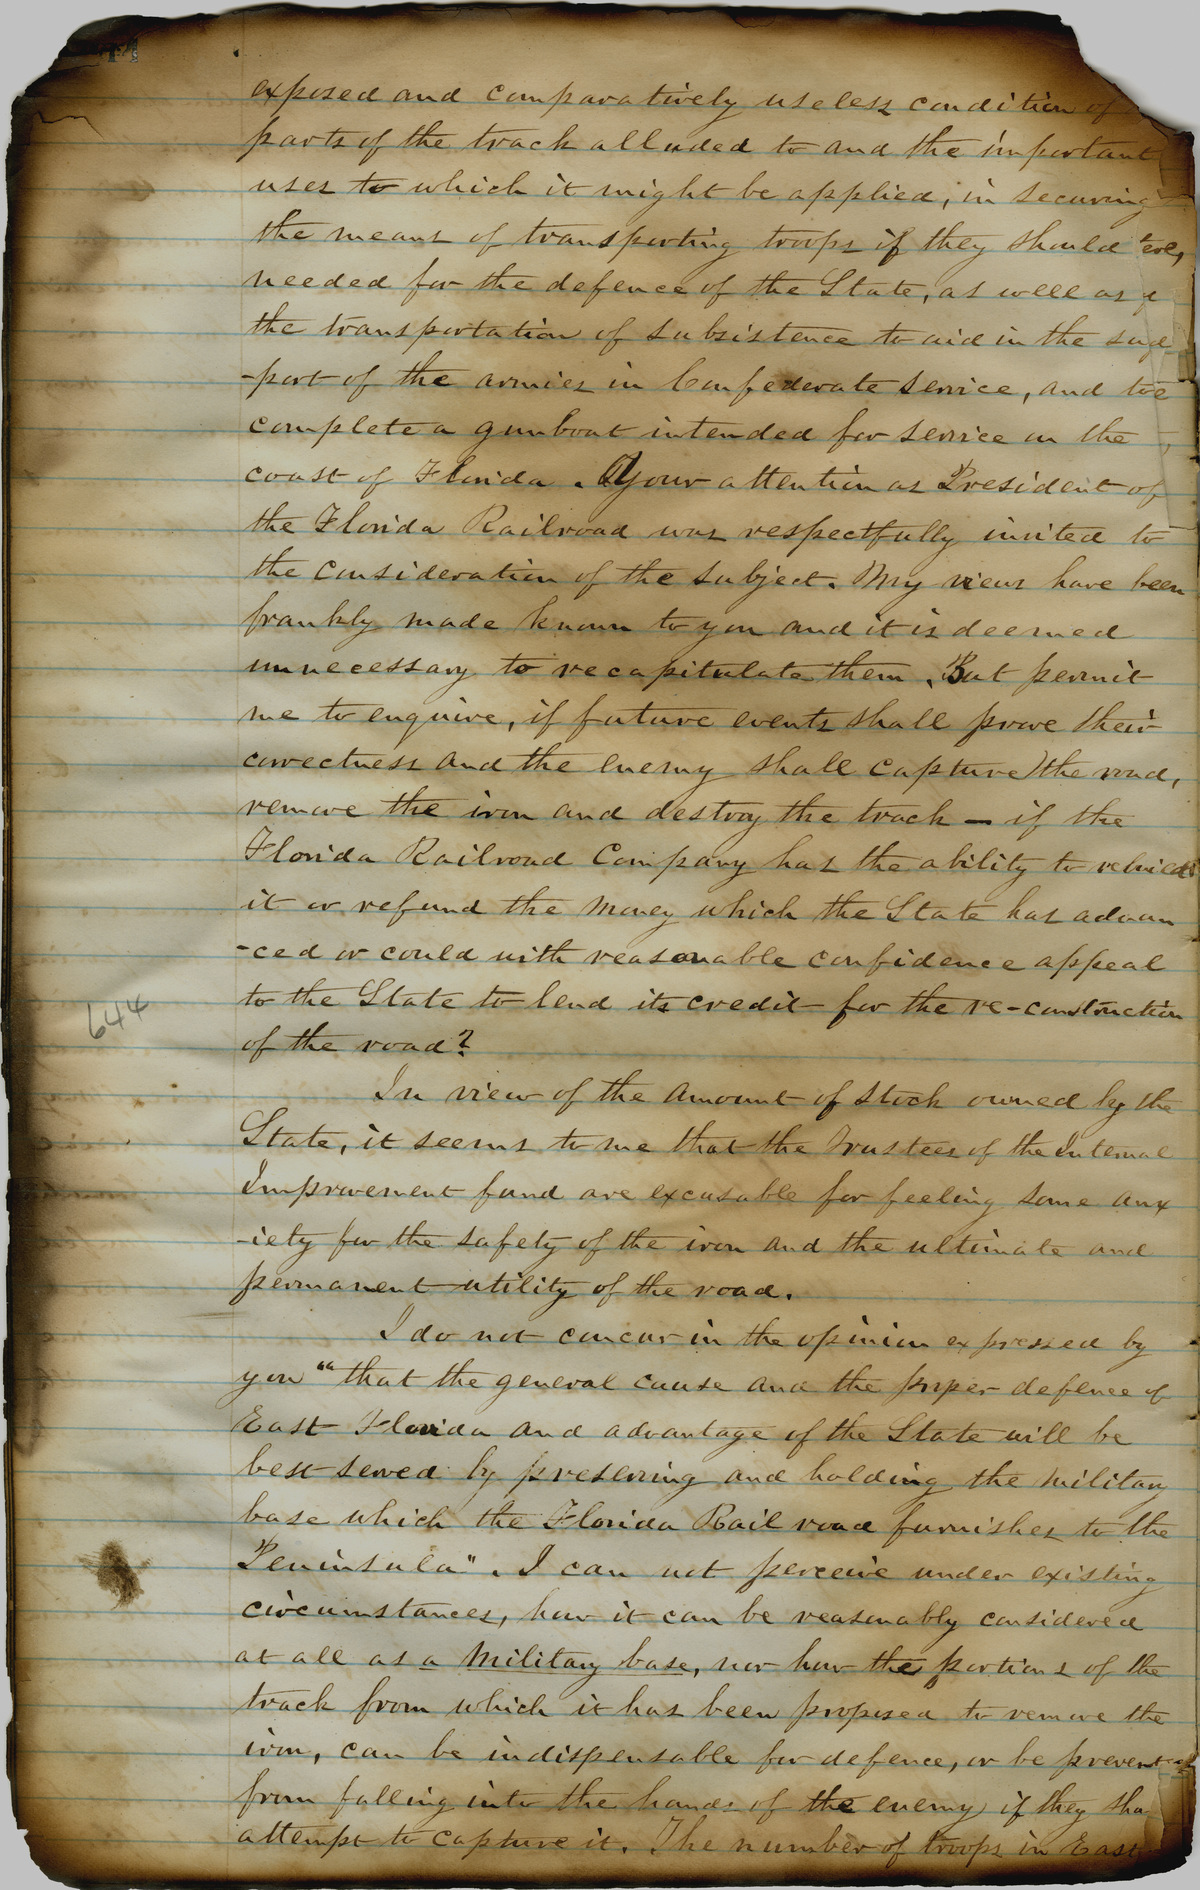 44
exposed and comparatively useless condition of
parts of the track alluded to and the important
uses to which it might be applied, in securing
the means of transporting troops if they should be,
needed for the defence of the State, as well as
the transportation of subsistence to aid in the sup
-port of the armies in Confederate service, and to
complete a gunboat intended for service on the
coast of Florida. Your attention as President of
the Florida Railroad was respectfully invited to
the consideration of the subject. My views have been
frankly made known to you and it is deemed
unnecessary to recapitulate them. But permit
me to enquire, if future events shall prove their
correctness and the enemy shall capture the road,
remove the iron and destroy the track — if the
Florida Railroad Company has the ability to rebuild
it or refund the money which the State has advan
-ced or could with reasonable confidence appeal
to the State to lend its credit for the re-construction
644
of the road?
In view of the amount of stock owned by the
State, it seems to me that the Trustees of the Internal
Improvement fund are excusable for feeling some anx
-iety for the safety of the iron and the ultimate and
permanent utility of the road.
I do not concur in the opinion expressed by
you "" that the general cause and the proper defence of
East Florida and advantage of the State will be
best served by preserving and holding the military
base which the Florida Rail road furnishes to the
Peninsula". I can not perceive under existing
circumstances, how it can be reasonably considered
at all as a military base, nor how the portions of the
track from which it has been proposed to remove the
iron, can be indispensable for defence, or be prevented
from falling into the hands of the enemy if they sha
attempt to capture it. The number of troops in East